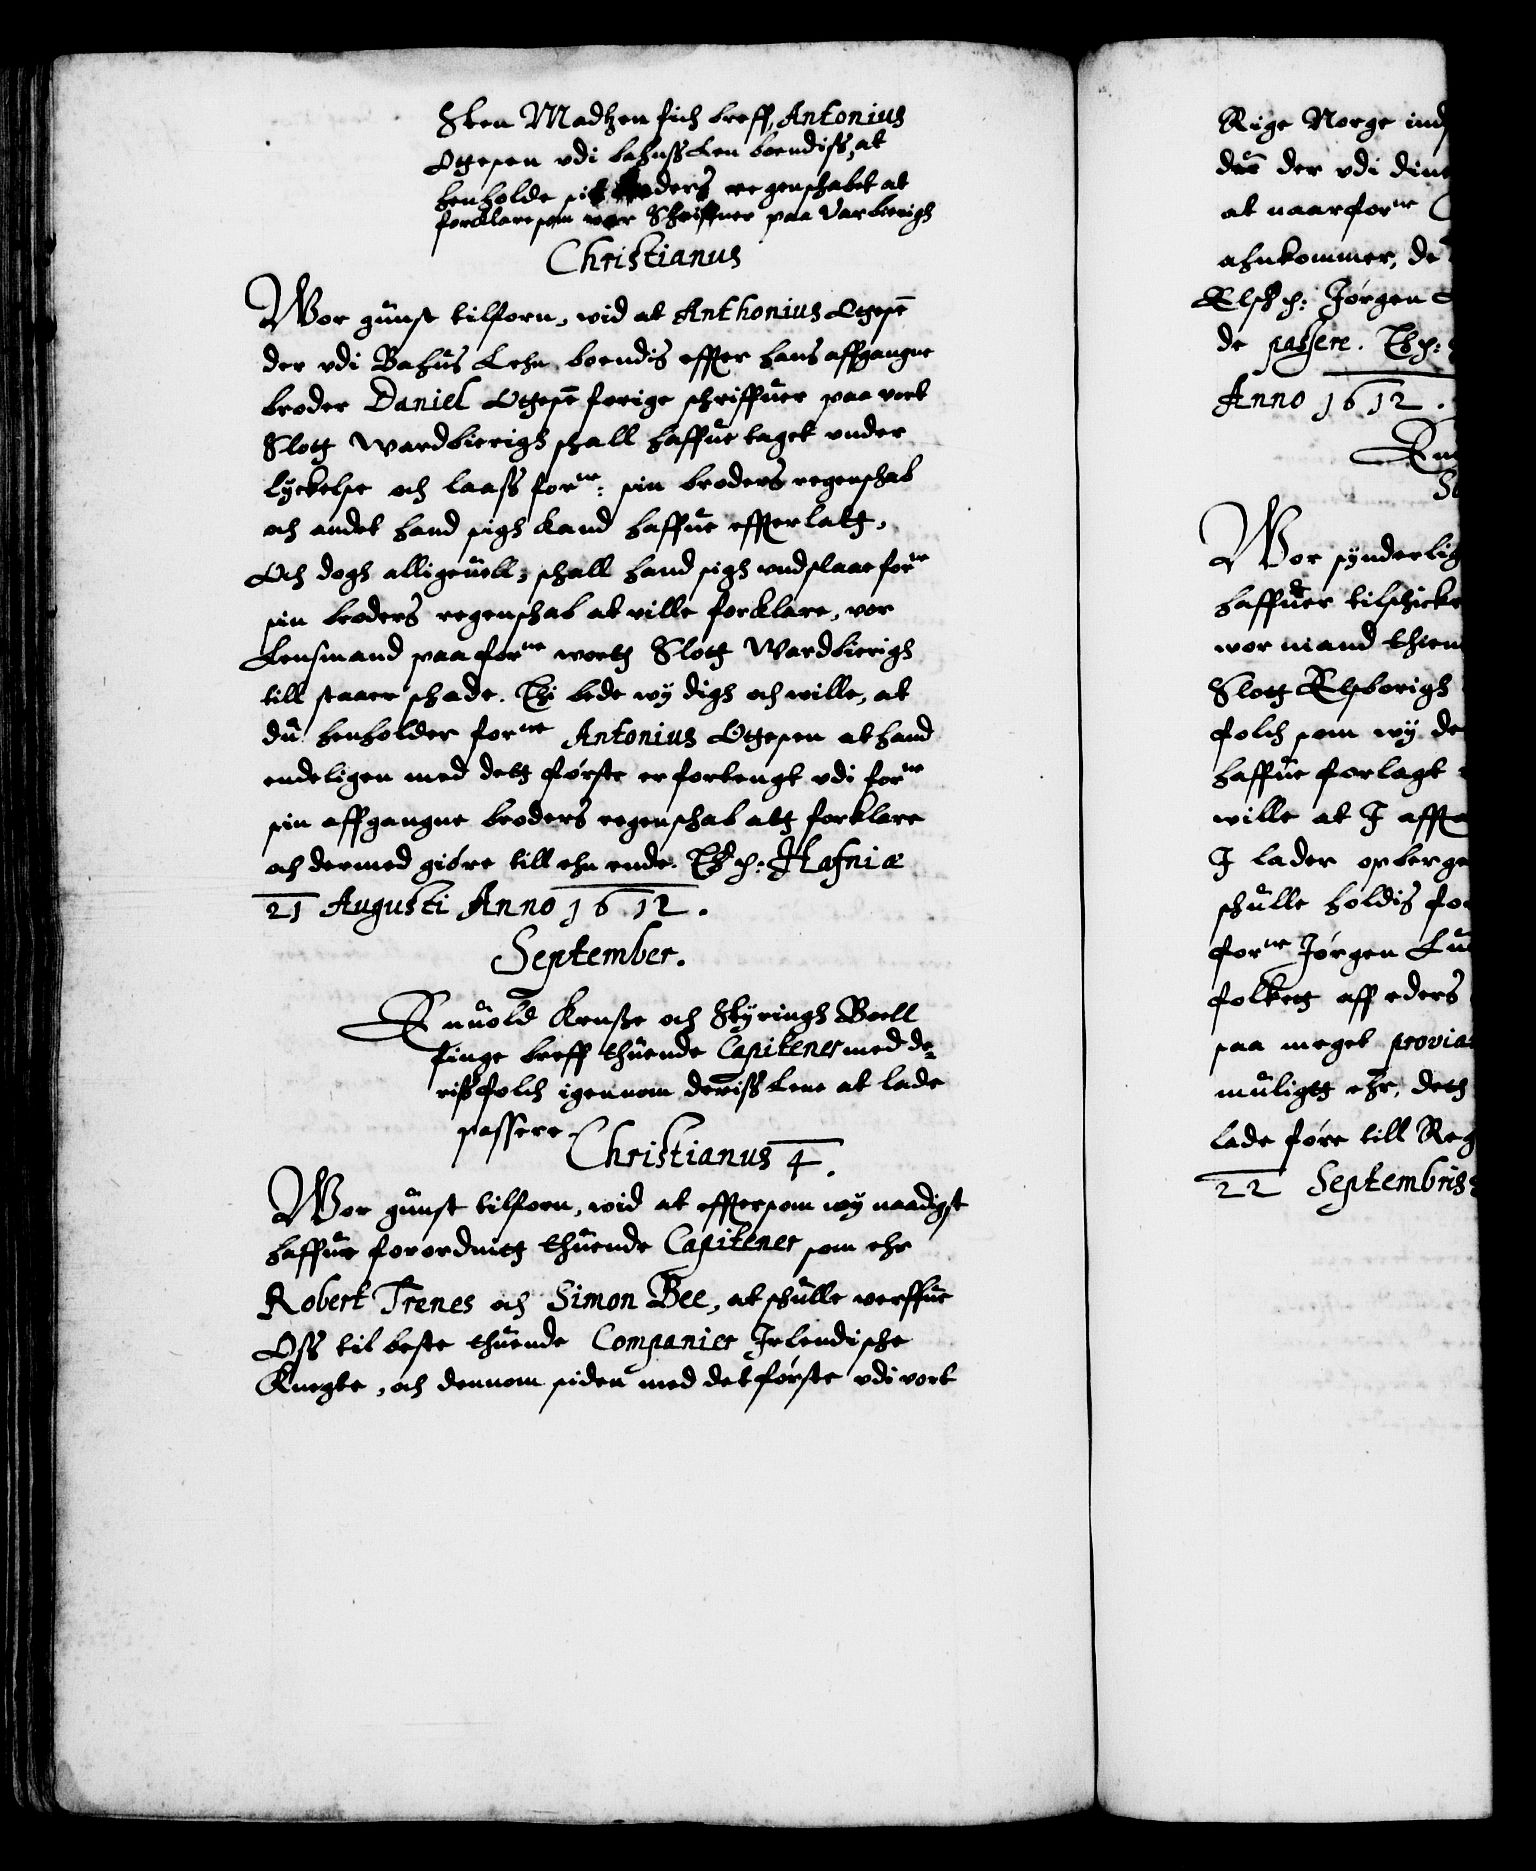 Sten Madtzen fich breff, Antonius
Ottesen vdi bahuss Len boendiss, at
henholde sit broders regenschabet at
forklare som var Schriffuer paa Varbierigh
Christianus
Wor günst tilforn, wid at Anthonius Ottesen̄
der vdi Bahüs Lehn boendis effter hans affgangne
broder Daniel Ottesen̄ forige schriffuer paa vort
Slott Wardbierigh schall haffue taget vnder
lyckelse och laass forne: sin broders regenschab
och andet hand sigh kand haffue effterlatt,
Och dogh alligeuell, schall hand sigh vndslaae forne
sin broders regenschab at ville forklare, vor
Lensmand paa forne wortt Slott Wardbierigh
till staaer schade. Thi bede wy digh och wille, at
dü henholder forne Antonius Ottesen at hand
endeligen med dett første er fortengt vdi forne
sin affgangne broders regenschab att forklare
och dermed giøre till ehn ende. Th ch: Hafniæ
21 Augusti Anno 1612.
September.
Enuold Kruse och Styringh Boell
finge breff thuende Capitener med de-
riss folch igennom deriss Lene at lade
passere.
Christianus 4.
Wor günst tilforn, wid at efftersom wy naadigst
haffue forordnitt thuende Capitener som ehr
Robert Trenes och Simon Bee, at schulle verffue
Oss til beste thuende Companier Irlendische
Knegte, och dennom siden med det første vdi vort
Rige Norge ind
der vdi dine
at naar forne
ahnkommer, de
Elsb ch: Jørgen
de passere. Th ch:
Anno 1612.
Wor synderlig
haffuer tilschicke
wor mand
Slott Elsborigh
folch som wy de
haffue forlagt
wille at I affta
I lader opberge
schulle holdis for
forne Jørgen Lu
folkett aff eders
saa meget provia
müligtt ehr, dett
lade føre till Reg
22 Septembris